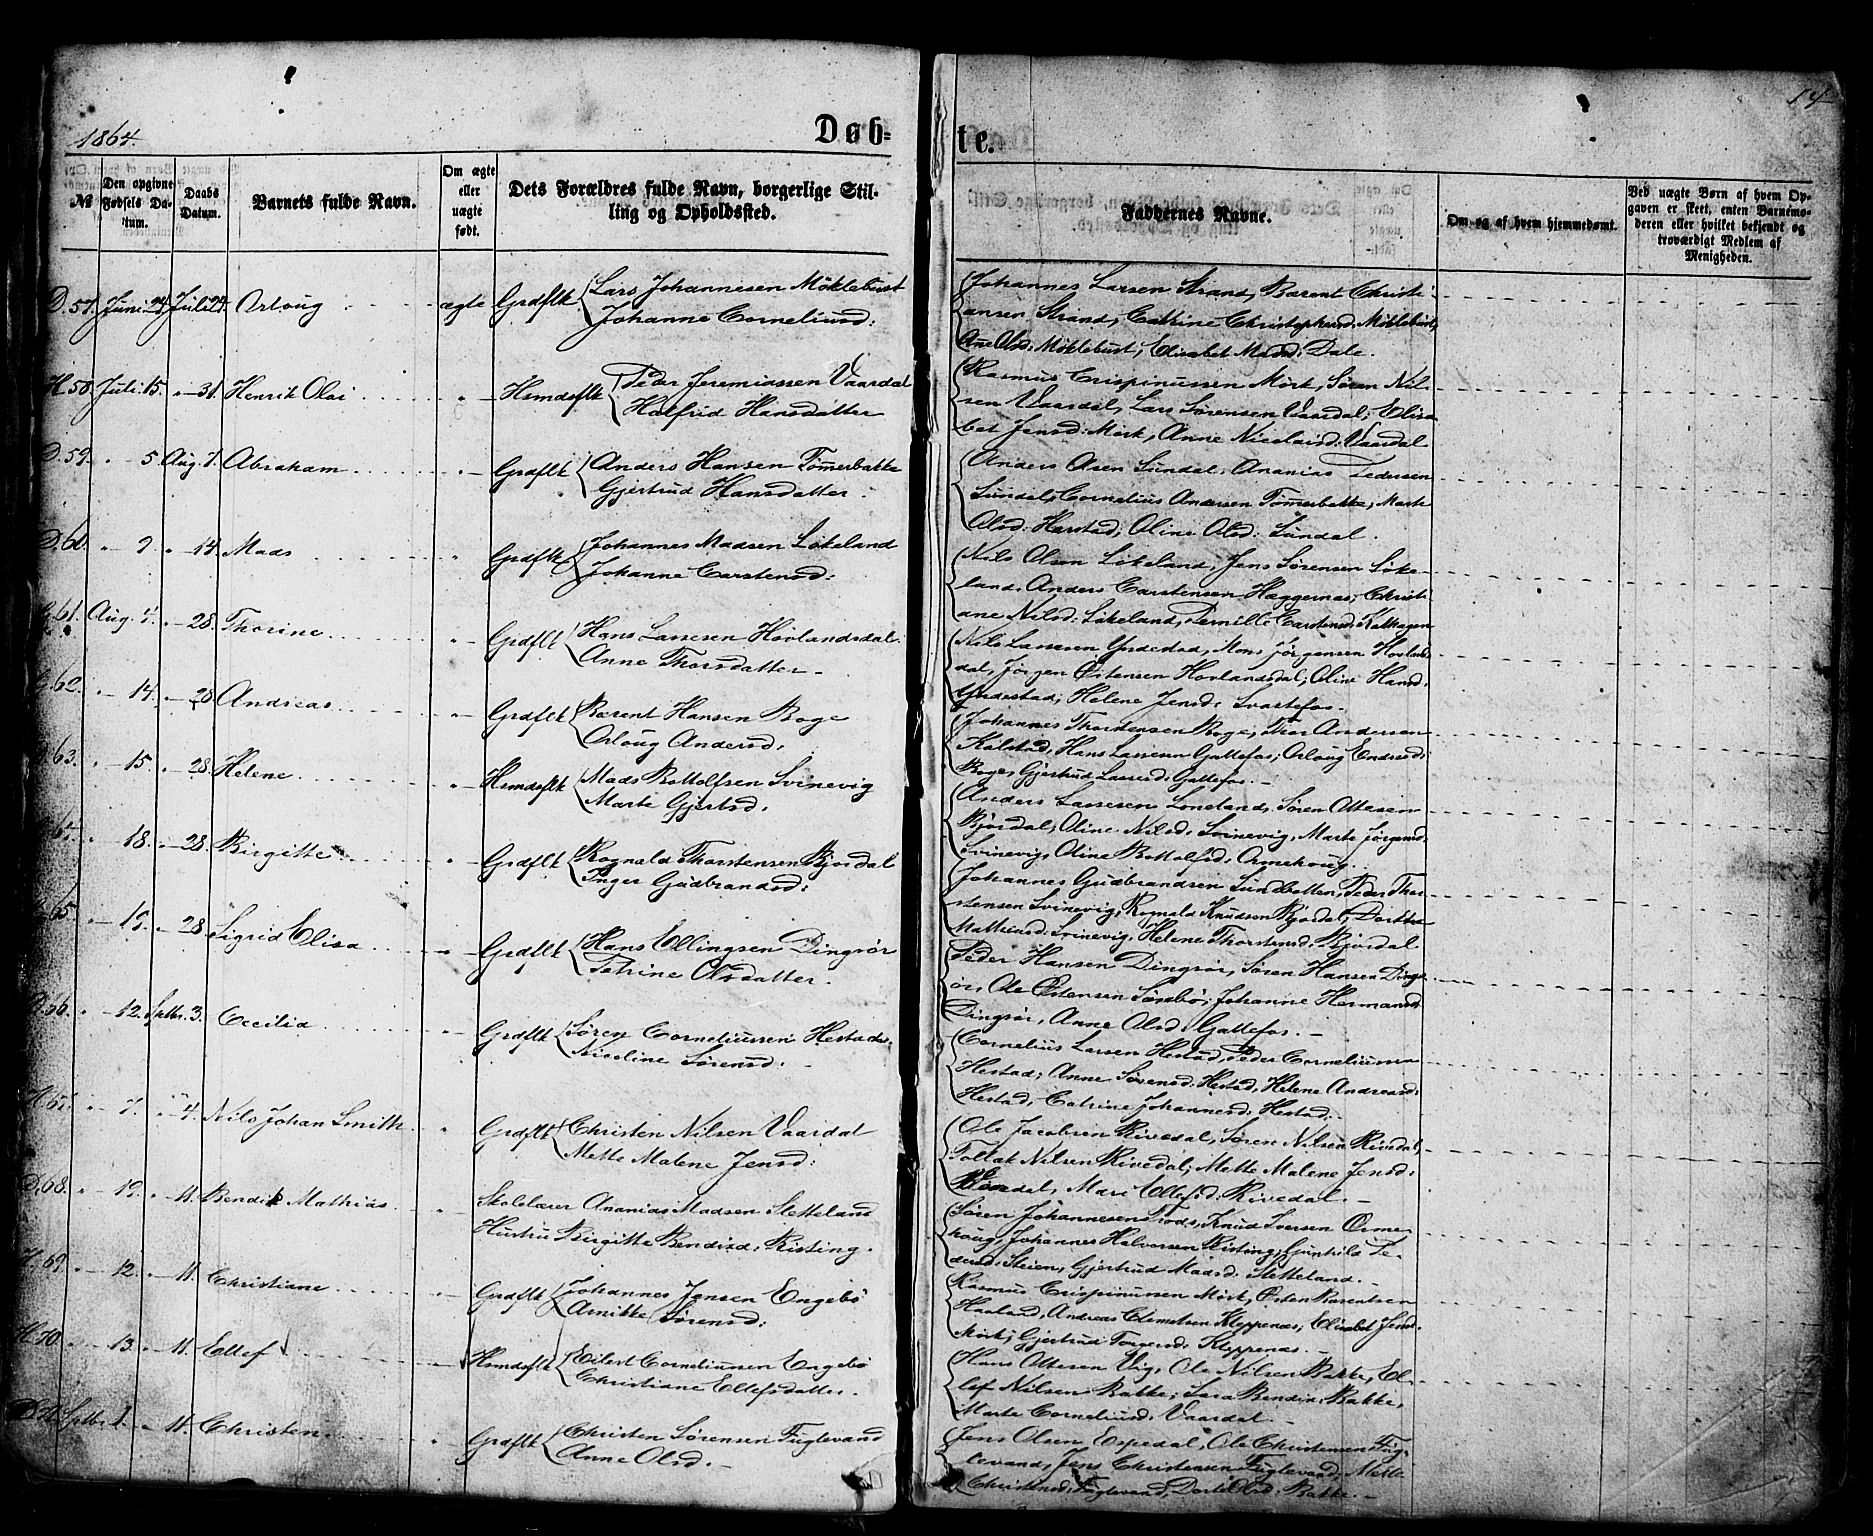 1864.
Døb-
te.
14
№
Den opgivne Fødsels Da-tum.
Daabs Datum.
Barnets fulde Navn.
Om ægte eller uægte født.
Dets Forældres fulde Navn, borgerlige Stil-
ling og Opholdssted.
Faddernes Navne.
Om og af hvem hjemmedøbt.
Ved uægte Børn af hvem Op-
gaven er skeet, enten Barnemo-
deren eller hvilket bekjendt og
troværdigt Medlem af
Menigheden.
D. 57. Juni 24. Juli 24. Orloug ægte Grdflk Lars Johannesen Møklebust
Johanne Corneliusd:
Johannes Larsen Strand, Barent Christi-
ansen Strand, Catrine Christophersd: Møklebust,
Ane Olsd: Møklebust, Elisabet Madsd: Dale.
H. 58. Juli 15. " 31. Henrik Olai " Hsmdsflk Peder Jeremiassen Vaardal
Holfrid Hansdatter
Rasmus Crispinussen Mørk, Søren Nil-
sen Vaardal, Lars Sørensen Vaardal; Elisa-
bet Jensd: Mørk, Anne Nicolaisd: Vaardal
D. 59. " 5. Aug. 7. Abraham " Grdflk Anders Hansen Tømerbakke
Gjertrud Hansdatter.
Anders Olsen Sundal, Ananias Pedersen
Sundal, Cornelius Andersen Tømerbakke, Marte
Olsd: Harstad, Oline Olsd: Sundal.
D. 60. " 9. " 14. Mads " Grdflk Johannes Madsen Løkeland
Johanne Carstensd:
Nils Olsen Løkeland, Jens Sørensen Løke-
land, Anders Carstensen Hæggernæs; Christi-
ane Nilsd: Løkeland, Pernille Carstensd:
61. Aug. 4. " 28. Thorine " Grdflk Hans Lassesen Hovlandsdal.
Anne Thorsdatter
Nils Lassesen Yndestad, Mons Jørgensen Hovlands-
dal, Jørgen Østensen Hovlandsdal, Oline Hansd:
Yndestad; Helene Jensd: Svartefos.
62. " 14. " 28. Andreas " Grdflk Barent Hansen Boge
Orloug Andersd:
Johannes Thorstensen Boge, Thor Andersen
Kalstad, Hans Lassesen Gattefos; Orloug Endresd:
Boge, Gjertrud Lassesd: Gattefos.
63. " 15. " 28. Helene " Hsmdsflk Mads Bottolfsen Svinevig
Marte Gjertsd.
Anders Lassesen Loneland, Søren Ottesen
Bjørdal, Oline Nilsd: Svinevig, Marte Jørgensd:
Svinevig, Olina Bottolfsd: Ormehoug.
64. " 18. " 28. Birgitte " Grdflk Rognald Thorstensen Bjordal
Inger Gudbrandsd:
Johannes Gudbrandsen Sundbotten, Peder Thor-
stensen Svinevig, Rognald Knudsen Bjordal, Dorthe
Mathiasd: Svinevig, Helene Thorstensd: Bjørdal
65. " 19. " 28. Sigrid Elisa " Grdflk Hans Ellingsen Dingsør
Petrine Olsdatter.
Peder Hansen Dingsør, Søren Hansen Dings-
ør, Ole Østensen Sæsebø, Johanne Hermansd:
Dingsør, Anne Olsd: Gattefos.
D. 66. " 12. Septbr. 3. Cecilia " Grdflk Søren Corneliussen Hestad
Nicoline Sørensd:
Cornelius Larsen Hestad, Peder Corneliussen
Hestad; Anne Sørensd: Hestad, Helene Andreasd:
Hestad, Catrine Johannesd: Hestad.
H. 67. " 7. " 4. Nils Johan Smith " Grdflk Christen Nilsen Vaardal
Mette Malene Jensd:
Ole Jacobsen Rivedal, Søren Nilsen Rivedal,
Tollak Nilsen Rivedal; Mette Malene Jensd:
Mari Ellefsd: Rivedal.
D. 68. " 19. " 11. Bendik Mathias " Skolelærer Ananias Madsen Sletteland
Hustru Birgitte Bendixd: Risting.
Søren Johannesen Fods, Knud Iversen Orme-
houg, Johannes Halvorsen Risting, Gunhild Pe-
dersd: Steien, Gjertrud Madsd: Sletteland.
H. 69. " 12. " 11. Christiane " Grdflk Johannes Jensen Engebø
Annikke Sørensd:
Rasmus Crispinussen Mørk, Østen Barentsen
Haaland, Andreas Clemetsen Kleppenæs; Elisabet Jensd:
Mørk, Gjertrud Kleppenæs.
H. 70. " 13. " 11. Ellef " Hsmdsflk Eilert Corneliussen Engebø
Christiane Ellefsdatter.
Hans Ottesen Vig, Ole Nilsen Bakke, El-
lef Nilsen Bakke; Sara Bendixd: Bakke,
Marte Corneliusd: Vaardal.
D. 71. Septbr. 1. " 11. Christen " Grdflk Christen Sørensen Fuglevand
Anne Olsd.
Jens Olsen Espedal, Ole Christensen Fug-
levand, Jens Christensen Fuglevand, Mette
Christensd: Fuglevand, Dorte Olsd: Bakke.